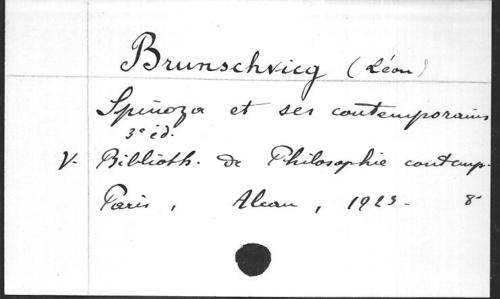 Brunschvicg (Léon)
Spinoza et ses contemporains
3e éd.
V. Biblioth. de Philosophie contemp.
Paris, Alcan, 1923. 8°